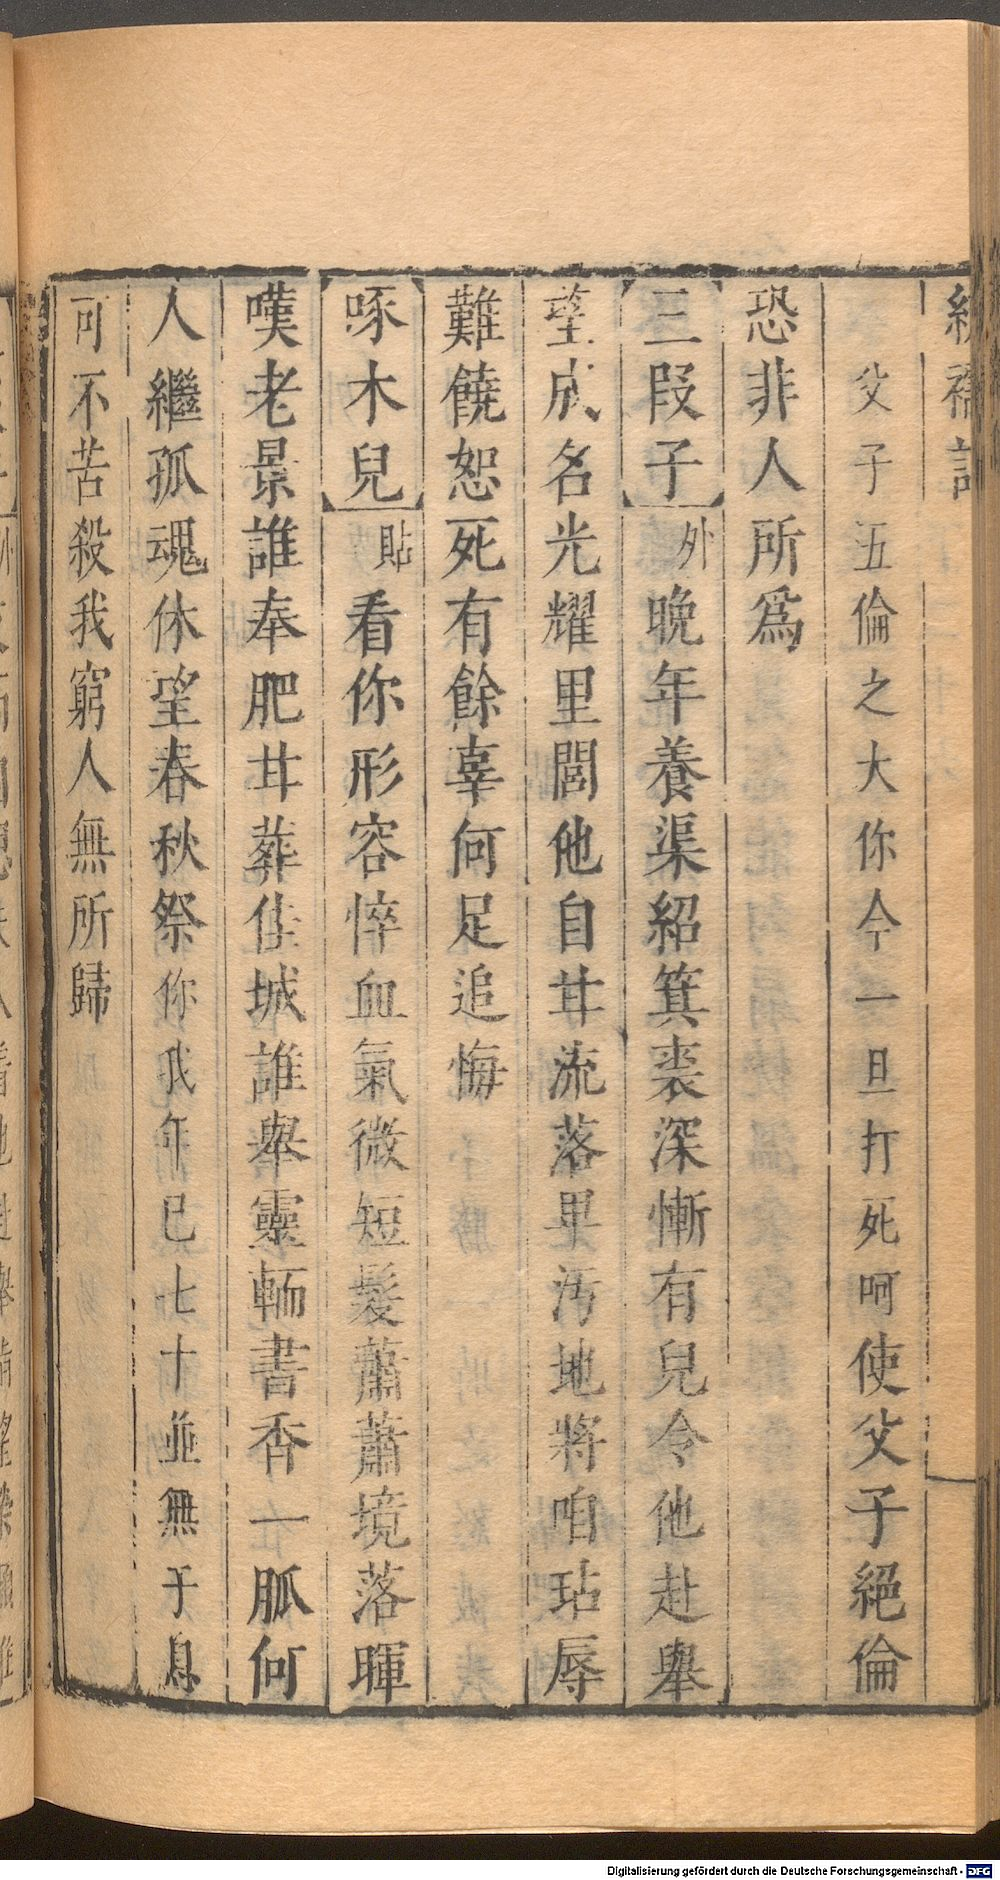 繡襦記
父子五倫之大你今一旦打死呵使父子絕倫
恐非人所爲
三段子 外 晚年養渠紹箕裘深慚有兒令他赴舉
望成名光耀里閭他自甘流落畢汚地將咱玷辱
難饒恕死有餘辜何足追悔
啄木兒 貼 看你形容悴血氣微短髮蕭蕭境落暉
嘆老景誰奉肥甘葬佳城誰舉靈輀書香一脈何
人繼孤魂休望春秋祭你我年已七十並無子息
可不苦殺我窮人無所歸
Digitalisierung gefördert durch die Deutsche Forschungsgemeinschaft - DFG